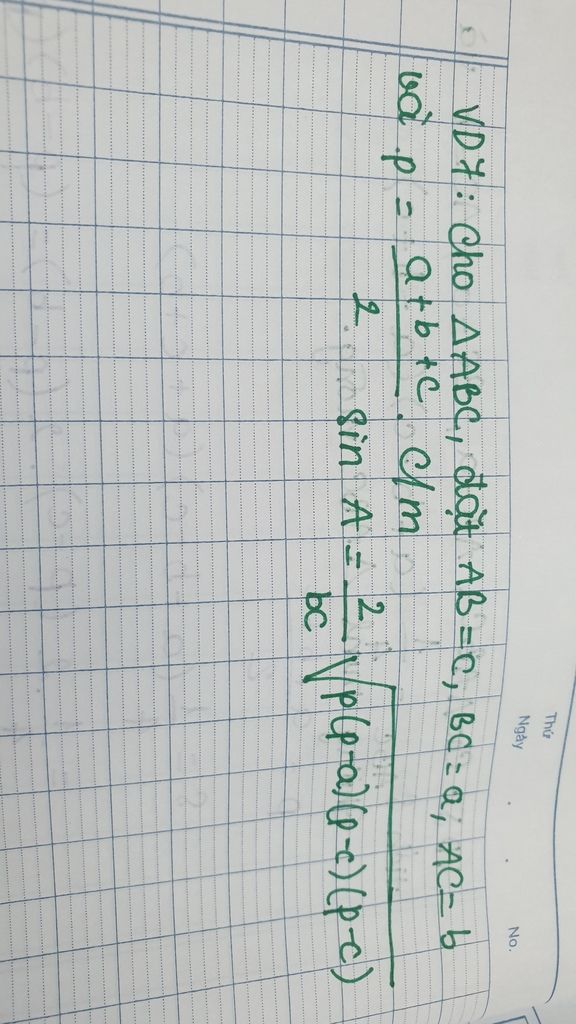 Thứ
Ngày
No.
VD7: Cho △ABC, đặt AB=c, BC=a, AC=b
và p = (a+b+c)/2 . C/m
sin A = 2/bc √(p(p-a)(p-c)(p-c))